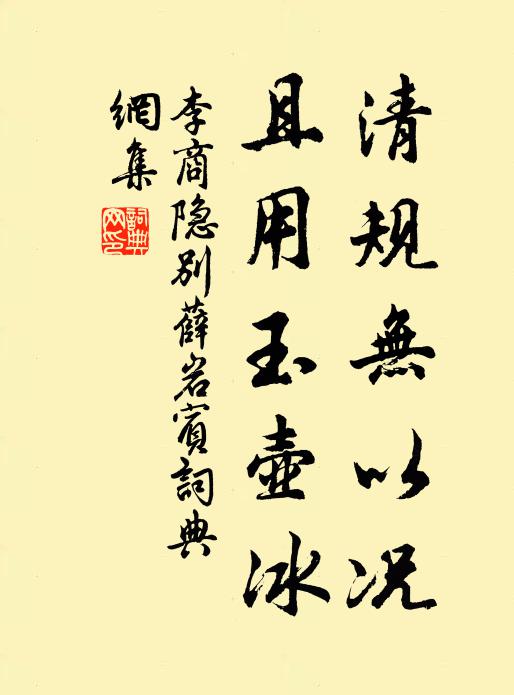 清規無以况
且用玉壺冰
李商隐别薛岩賓詞典
網集
詞典
网印